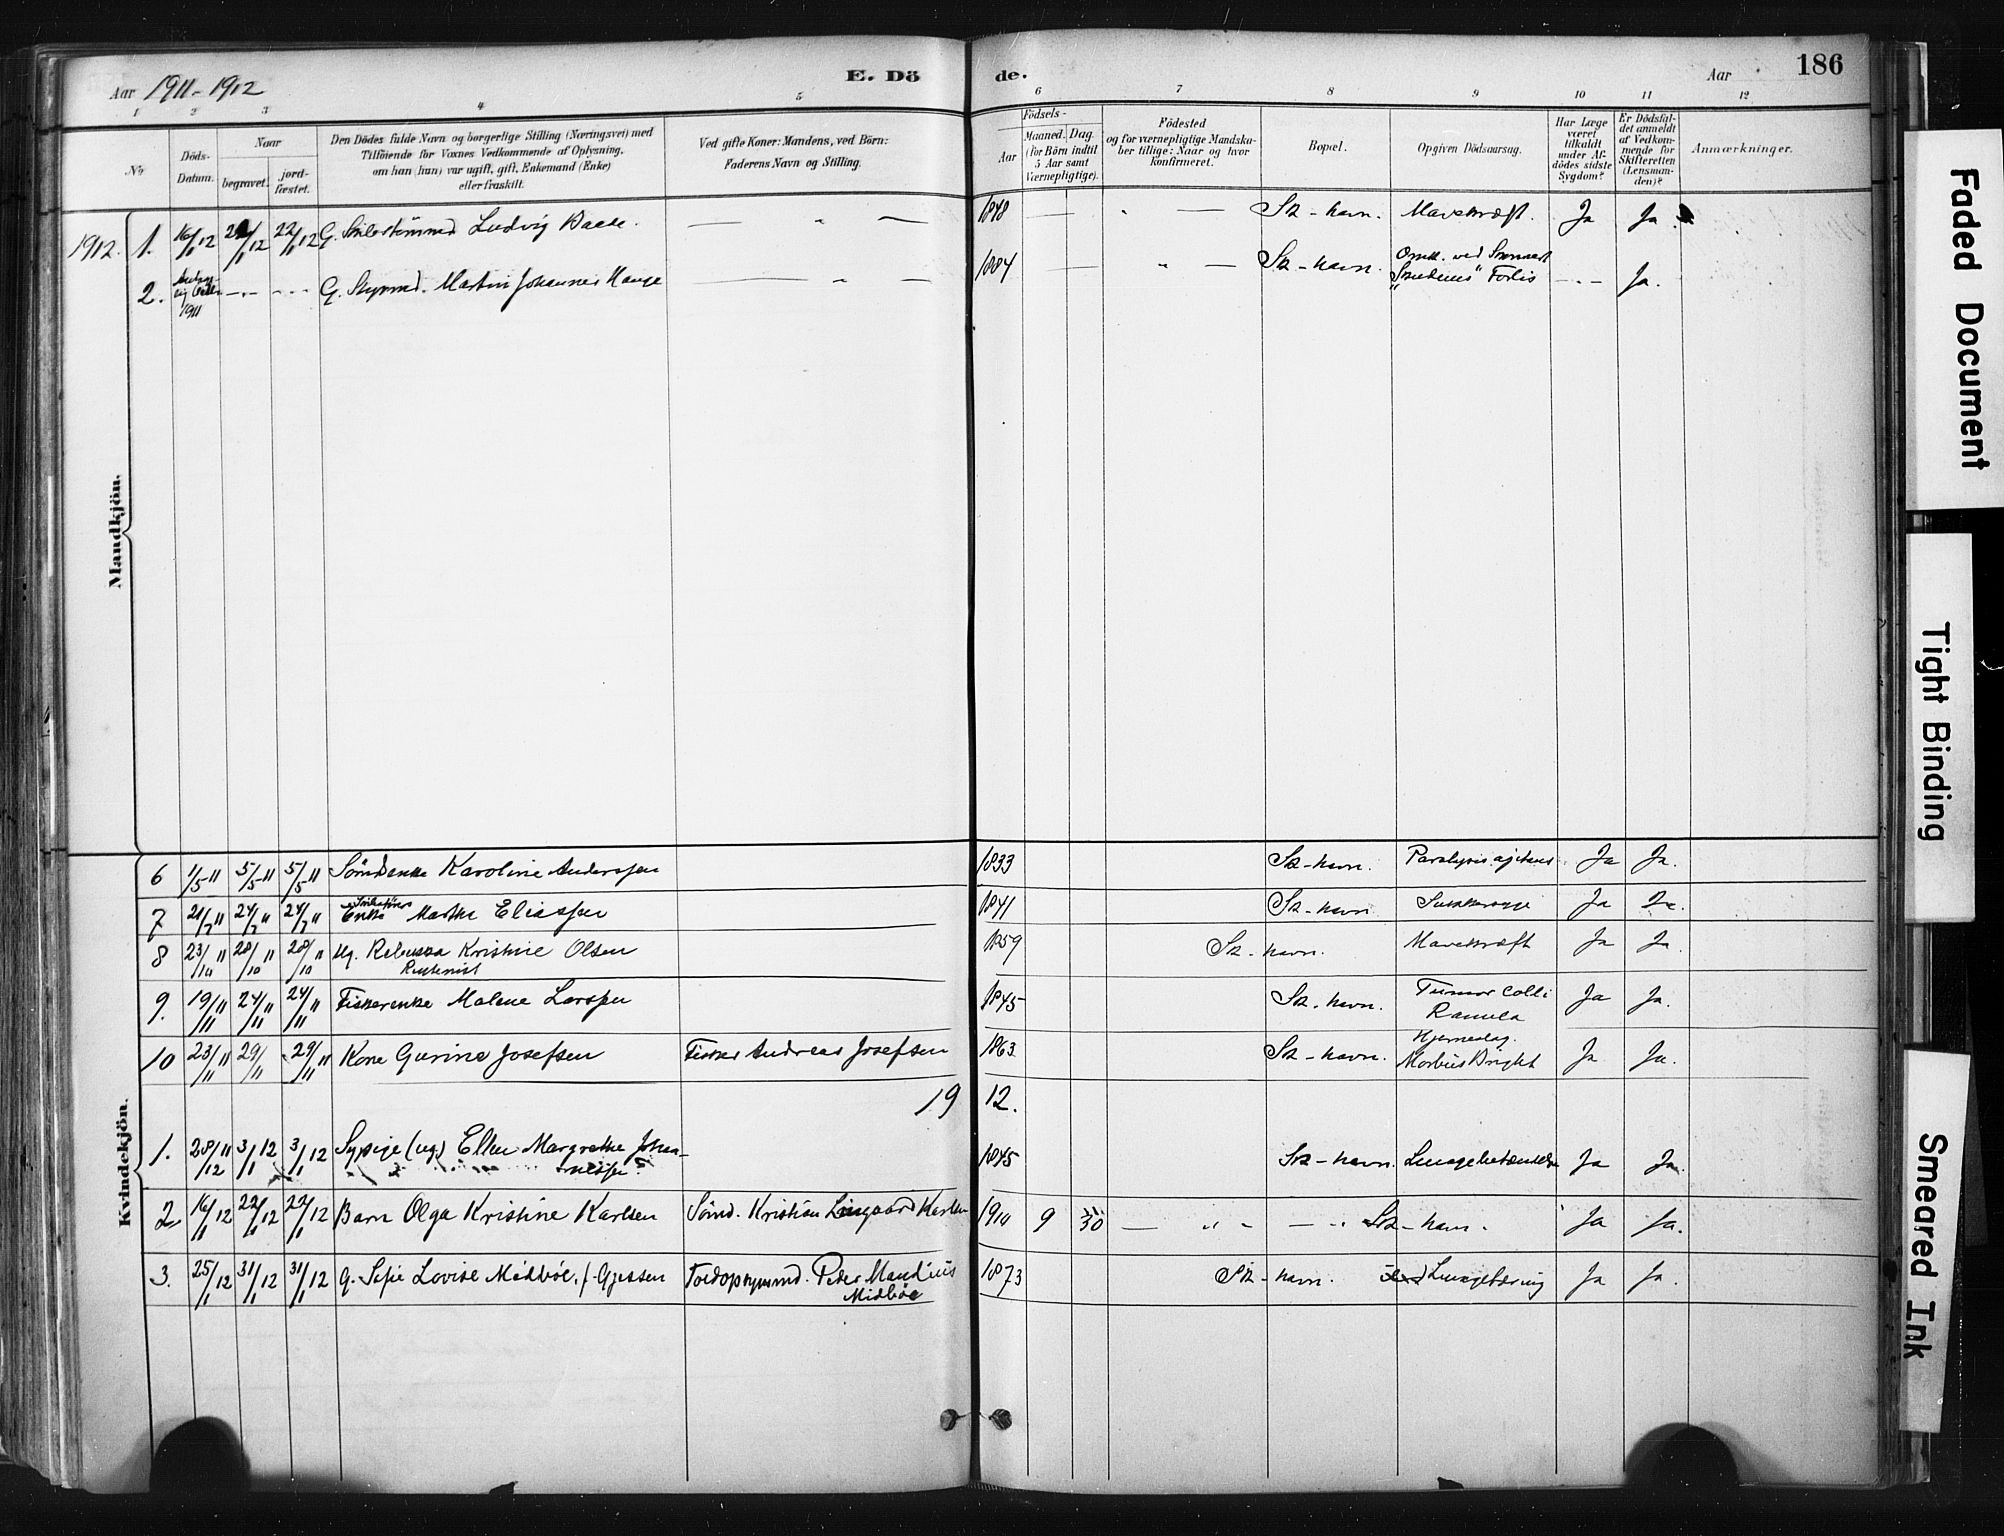 Aar 1911-1912
E. Dö
de.
Aar
186
1 2 3 4 5 6 7 8 9 10 11 12
No
Döds-
Datum.
Naar
begravet.
jord-
fæstet.
Den Dödes fulde Navn og borgerlige Stilling (Næringsvei) med
Tilföiende for Voxnes Vedkommende af Oplysning,
om han (hun) var ugift, gift, Enkemand (Enke)
eller fraskilt.
Ved gifte Koner: Mandens, ved Börn:
Faderens Navn og Stilling.
Födsels-
Aar
Maaned.
Dag.
(for Börn indtil
5 Aar samt
Værnepligtige).
Födested
og for værnepligtige Mandska-
ber tillige: Naar og hvor
konfirmeret.
Bopæl.
Opgiven Dödsaarsag.
Har Læge
været
tilkaldt
under Af-
dödes sidste
Sygdom?
Er Dödsfal-
det anmeldt
af Vedkom-
mende for
Skifteretten
(Lensman-
den)?
Anmærkninger.
Mandkjön.
1912. 1. 16/1 12 22/1 12 22/1 12 G. Ludvig 1848 Sk-havn. Mavekræft. Ja Ja.
2. 1911 G. Styrmd. Martin Johannes Hauge 1884 Sk-havn. Omk. ved Forlis Ja.
Kvindekjön.
6 1/5 11 5/5 11 5/5 11 Sömdsenke Karoline Anderssen 1833 Sk-havn. Paralysis agitans Ja Ja.
7 21/7 11 24/7 11 24/7 11 Enke Marthe Eliassen 1841 Sk-havn Ja Ja.
8 23/10 11 28/10 11 28/10 11 Ug. Rebekka Kristine Olsen 1859 Sk-havn. Mavekræft Ja Ja.
9. 19/11 11 24/11 11 24/11 11 Fiskerenke Malene Larssen 1845 Sk-havn. Tumor Colli Ja Ja.
10 23/11 11 29/11 29/11 11 Kone Gurine Josefsen Fisker Andreas Josefsen 1863 Sk-havn. Hjerneslag.
Morbus Bright Ja Ja.
19 12.
1. 28/12 11 3/1 12 3/1 12 Sypige (ug.) Ellen Margrethe Johan-
nessen 1845 Sk-havn. Lungebetændelse Ja Ja.
2 16/1 12 22/1 12 22/1 12 Barn Olga Kristine Karlsen Sömd. Kristian Lingaard Karlsen 1910 9 30 Sk-havn. Ja Ja.
3. 25/1 12 31/1 12 31/1 12 G. Sofie Lovise Midböe, f. Gjessen Peder Mandius
Midböe 1873 Sk-havn. Lungetæring Ja Ja.
Faded Document
Tight Binding
Smeared Ink